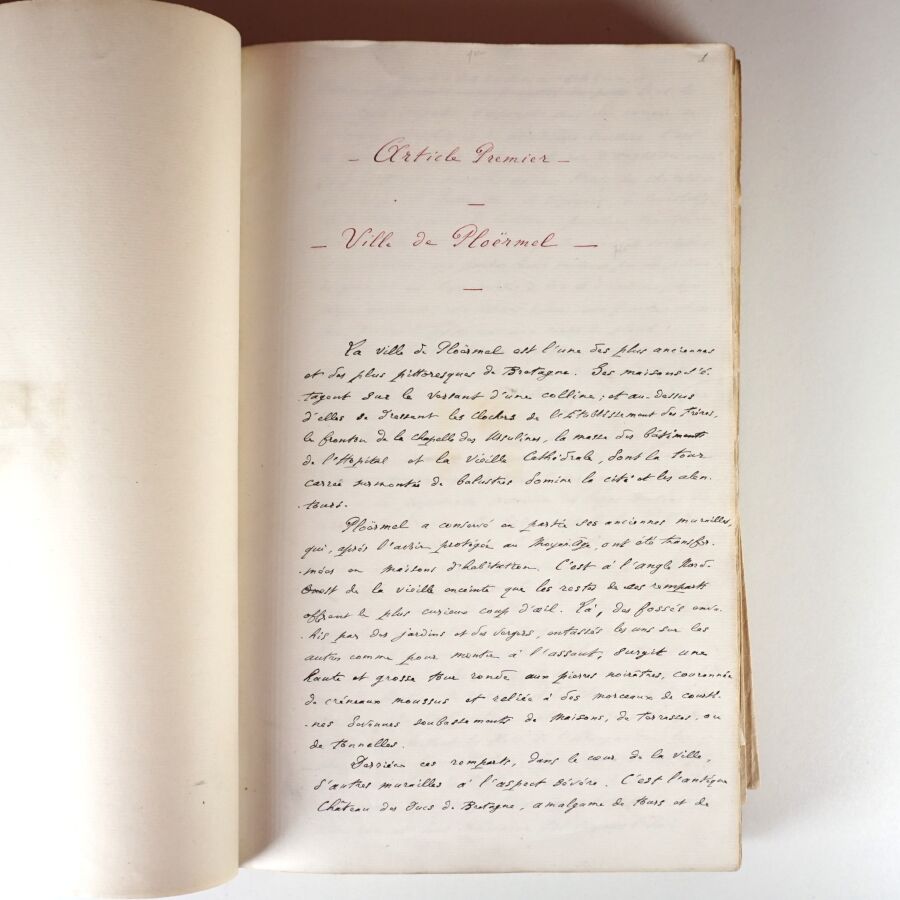 1
— Article Premier —
— Ville de Ploërmel —
La ville de Ploërmel est l'une des plus anciennes
et des plus pittoresques de Bretagne. Ses maisons s'é-
tagent sur le versant d'une colline; et au-dessus
d'elles se dressent les clochers de l'Etablissement des Frères,
le fronton de la chapelle des Ursulines, la masse des bâtiments
de l'Hôpital et la vieille Cathédrale, dont la tour
carrée surmontée de balustres domine la cité et les alen-
-tours.
Ploërmel a conservé en partie ses anciennes murailles,
qui, après l'avoir protégée au Moyen-Age, ont été transfor-
-mées en maisons d'habitation. C'est à l'angle Nord-
Ouest de la vieille enceinte que les restes de ces remparts
offrent le plus curieux coup d'œil. Là, des fossés enva-
-his par des jardins et des vergers, entassés les uns sur les
autres comme pour monter à l'assaut, surgit une
haute et grosse tour ronde aux pierres noirâtres, couronnée
de créneaux moussus et reliée à des morceaux de courti-
-nes devenues soubassements de maisons, de terrasses, ou
de tonnelles.
Derrière ces remparts, dans le cœur de la ville,
d'autres murailles à l'aspect sévère. C'est l'antique
Château des Ducs de Bretagne, amalgame de tours et de